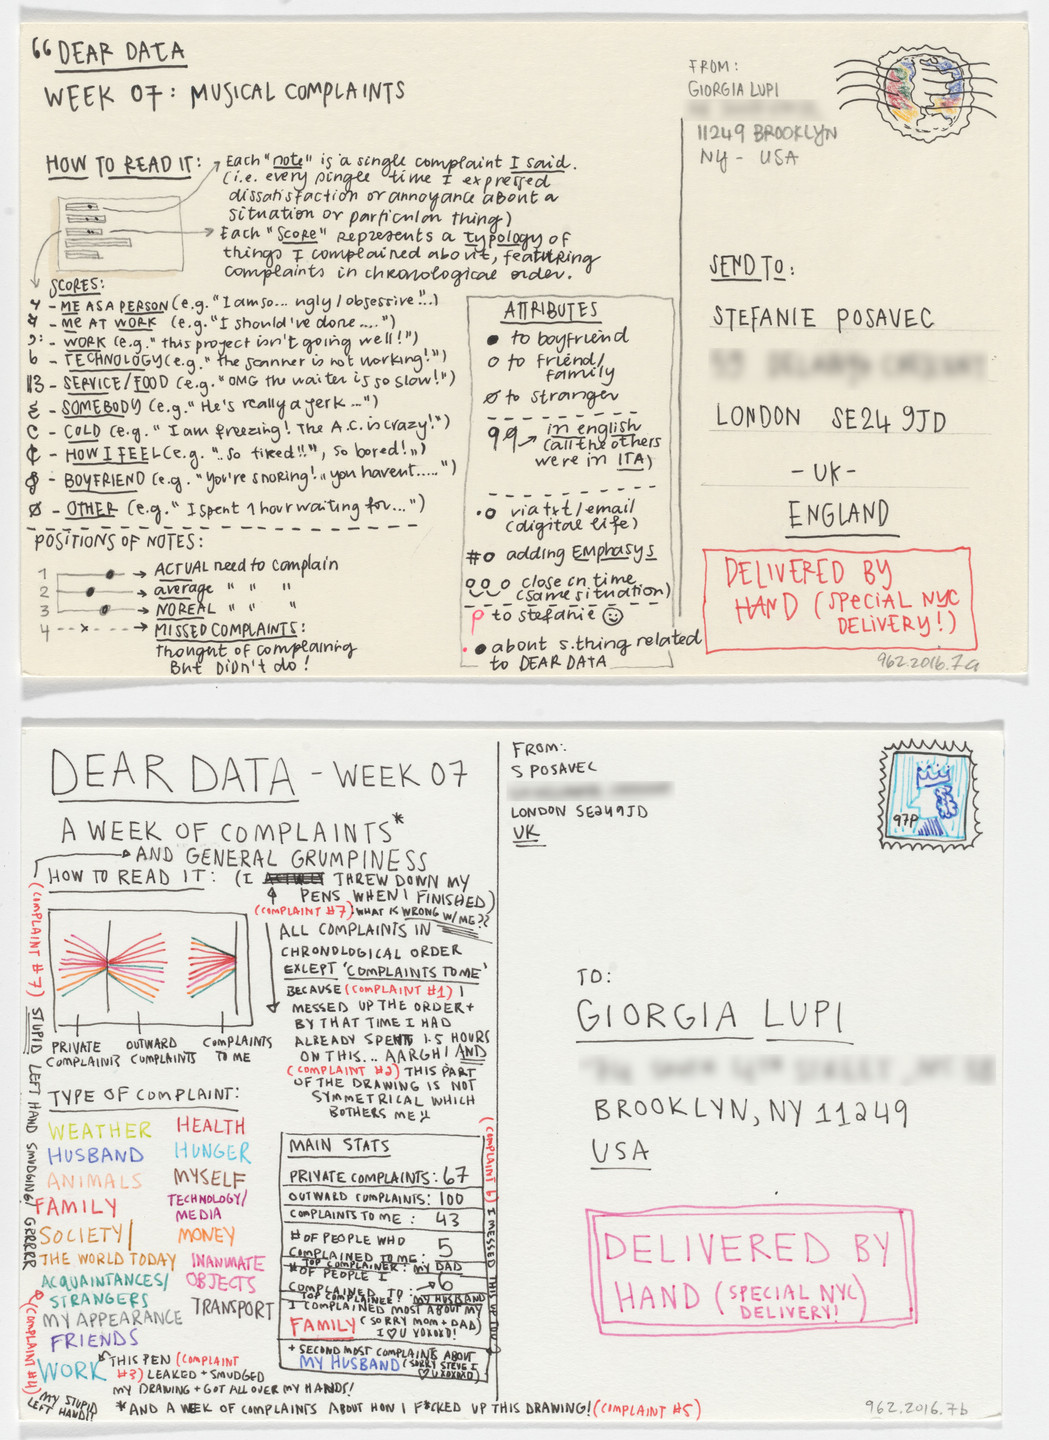 “DEAR DATA
WEEK 07: MUSICAL COMPLAINTS
HOW TO READ IT:
Each "note" is a single complaint I said.
(i.e. every single time I expressed
dissatisfaction or annoyance about a
situation or particular thing)
Each "score" represents a typology of
things I complained about, featuring
complaints in chronological order.
SCORES:
- ME AS A PERSON (e.g. "I am so... ugly/obsessive"..)
- ME AT WORK (e.g. "I should've done ....")
- WORK (e.g. "this project isn't going well!")
- TECHNOLOGY (e.g. "the scanner is not working!")
- SERVICE/FOOD (e.g. "OMG the waiter is so slow!")
- SOMEBODY (e.g. "He's really a jerk...")
- COLD (e.g. "I am freezing! The A.C. is crazy!")
- HOW I FEEL (e.g. ".. so tired!!", so bored!")
- BOYFRIEND (e.g. "you're snoring!, you havent.....")
- OTHER (e.g. "I spent 1 hour waiting for...")
POSITIONS OF NOTES:
1 → ACTUAL need to complain
2 → average " " "
3 → NO REAL " " "
4 - - x - - → MISSED COMPLAINTS:
thought of complaining
BUT DIDN'T do!
ATTRIBUTES
to boyfriend
to friend/
family
to stranger
in english
(all the others
were in ITA)
via txt/email
(digital life)
# adding EMPHASYS
close in time
(same situation)
to stefanie ☺
about s.thing related
to DEAR DATA
FROM:
GIORGIA LUPI
11249 BROOKLYN
NY - USA
SEND TO:
STEFANIE POSAVEC
LONDON SE24 9JD
- UK -
ENGLAND
DELIVERED BY
HAND (SPECIAL NYC
DELIVERY!)
962.2016.7a
DEAR DATA - WEEK 07
A WEEK OF COMPLAINTS*
AND GENERAL GRUMPINESS
HOW TO READ IT: (I THREW DOWN MY
PENS WHEN I FINISHED)
(COMPLAINT #7) WHAT IS WRONG W/ME??
ALL COMPLAINTS IN
CHRONOLOGICAL ORDER
EXCEPT 'COMPLAINTS TO ME'
BECAUSE (COMPLAINT #1) I
MESSED UP THE ORDER +
BY THAT TIME I HAD
ALREADY SPENT 1.5 HOURS
ON THIS... AARGH! AND
(COMPLAINT #2) THIS PART
OF THE DRAWING IS NOT
SYMMETRICAL WHICH
BOTHERS ME
PRIVATE
COMPLAINTS
OUTWARD
COMPLAINTS
COMPLAINTS
TO ME
(COMPLAINT #7) STUPID LEFT HAND SMUDGING! GRRRRR
TYPE OF COMPLAINT:
WEATHER
HUSBAND
ANIMALS
FAMILY
SOCIETY/
THE WORLD TODAY
ACQUAINTANCES/
STRANGERS
MY APPEARANCE
FRIENDS
WORK
HEALTH
HUNGER
MYSELF
TECHNOLOGY/
MEDIA
MONEY
INANIMATE
OBJECTS
TRANSPORT
THIS PEN (COMPLAINT
#3) LEAKED + SMUDGED
MY DRAWING + GOT ALL OVER MY HANDS!
(COMPLAINT #4)
MY STUPID
LEFT HAND!!
*AND A WEEK OF COMPLAINTS ABOUT HOW I F*CKED UP THIS DRAWING! (COMPLAINT #5)
MAIN STATS
PRIVATE COMPLAINTS: 67
OUTWARD COMPLAINTS: 100
COMPLAINTS TO ME: 43
# OF PEOPLE WHO
COMPLAINED TO ME: 5
TOP COMPLAINER: MY DAD
# OF PEOPLE I
COMPLAINED TO: 6
TOP COMPLAINEE: MY HUSBAND
I COMPLAINED MOST ABOUT MY
FAMILY (SORRY MOM + DAD)
I ♡ U XOXOXO!
+ SECOND MOST COMPLAINTS ABOUT
MY HUSBAND (SORRY STEVE I
♡ U XOXOXO)
(COMPLAINT 6) I MESSED THIS UP TOO
FROM:
S POSAVEC
LONDON SE24 9JD
UK
97P
TO:
GIORGIA LUPI
BROOKLYN, NY 11249
USA
DELIVERED BY
HAND (SPECIAL NYC
DELIVERY!
962.2016.7b